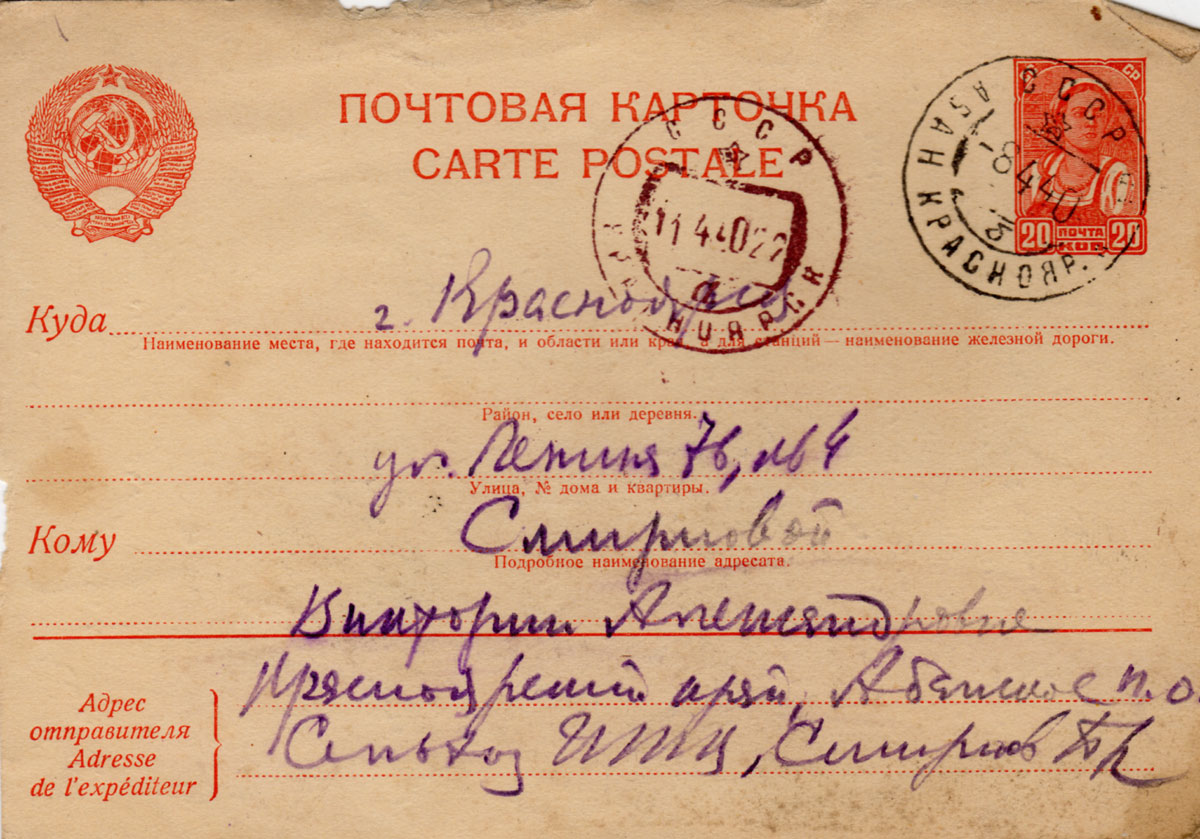 ПОЧТОВАЯ КАРТОЧКА
CARTE POSTALE
СССР
АБАН КРАСНОЯР.
-8 4 40
СР
20 ПОЧТА КОП 20
СССР
11 4 40 22
Куда г. Красноярск
Наименование места, где находится почта, и области или края, а для станций — наименование железной дороги.
Район, село или деревня.
ул. Ленина 76, кв 4
Улица, № дома и квартиры.
Кому Смирновой
Подробное наименование адресата.
Виктории Александровне
Адрес отправителя
Adresse de l'expéditeur
Красноярский край, Абанское п.о
Сельхоз Смирнов